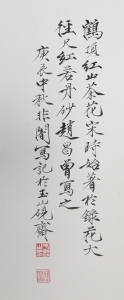 鶴頂紅山茶花宋時始著於錄花大
徑尺紅若丹砂趙昌曾寫之
庚辰中秋非闇寫記於玉山硯齋